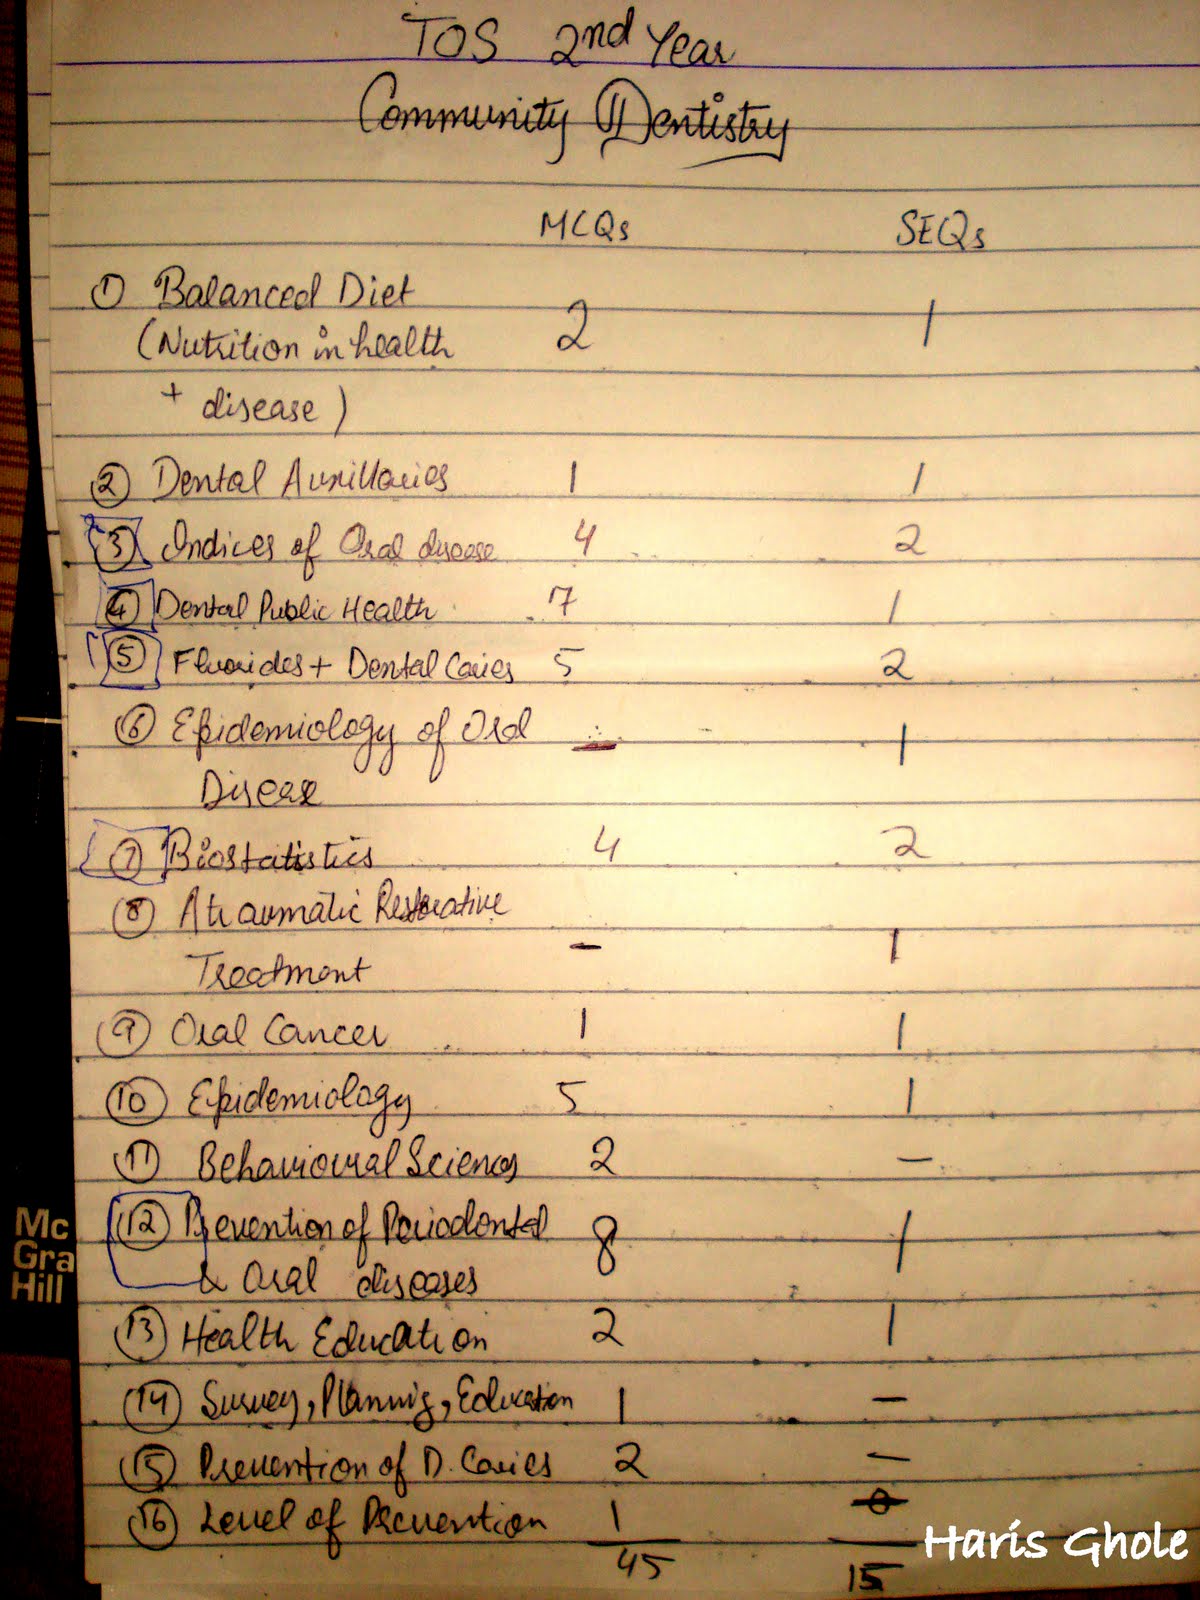 TOS 2nd Year
Community Dentistry
MCQs SEQs
① Balanced Diet
(Nutrition in health 2 1
+ disease)
② Dental Auxillaries 1 1
③ Indices of Oral disease 4 2
④ Dental Public Health 7 1
⑤ Fluorides + Dental Caries 5 2
⑥ Epidemiology of Oral — 1
Disease
⑦ Biostatistics 4 2
⑧ Atraumatic Restorative
Treatment — 1
⑨ Oral Cancer 1 1
⑩ Epidemiology 5 1
⑪ Behavioural Sciences 2 —
⑫ Prevention of Periodontal 8 1
& Oral diseases
⑬ Health Education 2 1
⑭ Survey, Planning, Education 1 —
⑮ Prevention of D. Caries 2 —
⑯ Level of Prevention 1 0
45 15
Mc
Gra
Hill
Haris Ghole